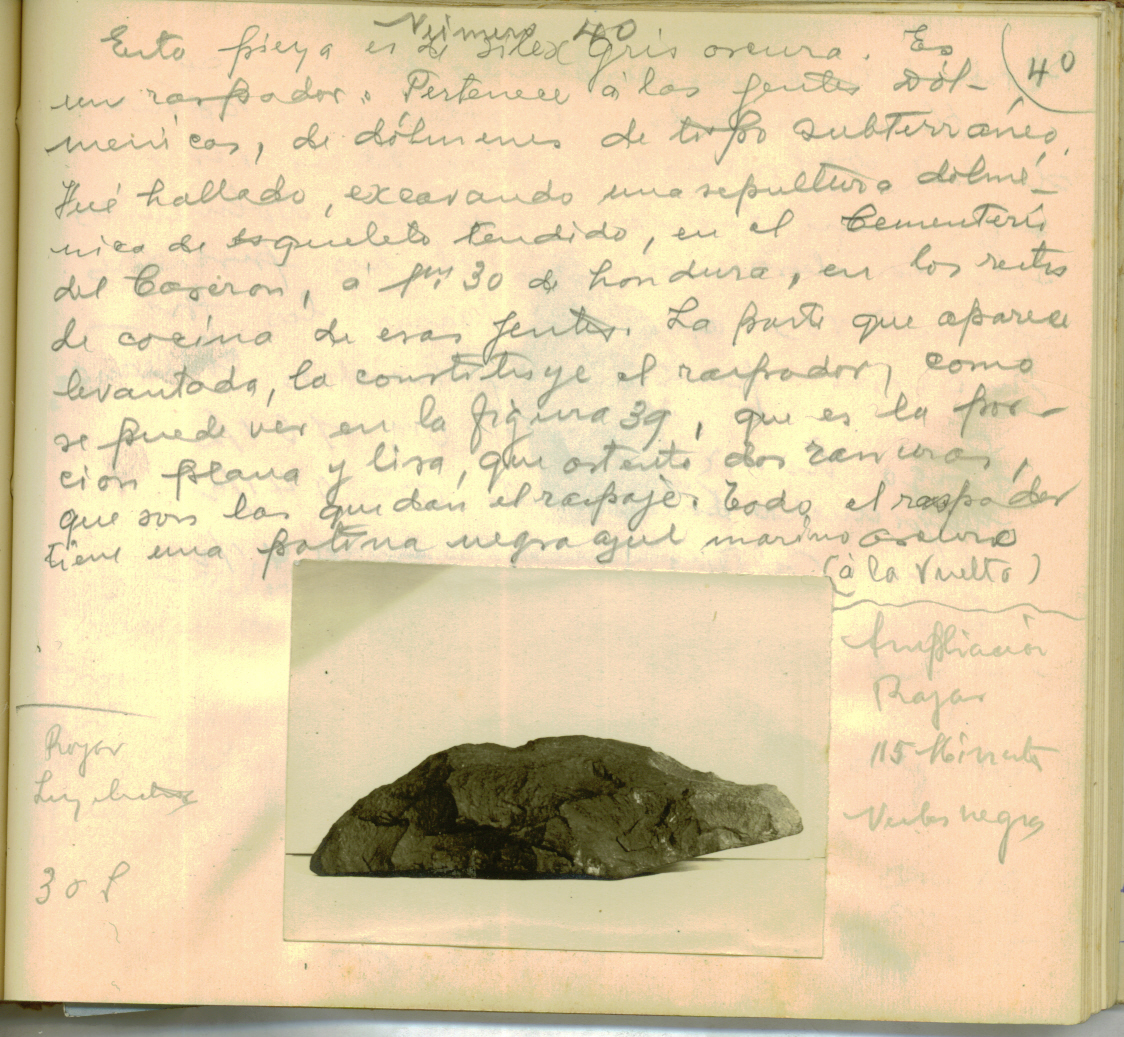 Número 40
40
Esta pieza es de silex gris oscura. Es
un raspador. Pertenece á las gentes dól-
ménicas, de dólmenes de tipo subterráneo.
Fué hallado, excavando una sepultura dolmé-
nica de esqueleto tendido, en el Cementerio
del Caseron, á 1m 30 de hondura, en los restos
de cocina de esas gentes. La parte que aparece
levantada, la constituye el raspador, como
se puede ver en la figura 39, que es la por-
cion plana y lisa, que ostenta dos ranuras,
que son las que dan el raspaje. Todo el raspador
tiene una patina negra azul marino oscuro
(á la vuelta)
Ampliación
Rajar
115 Minutos
Nubes negras
Rojar
30 S